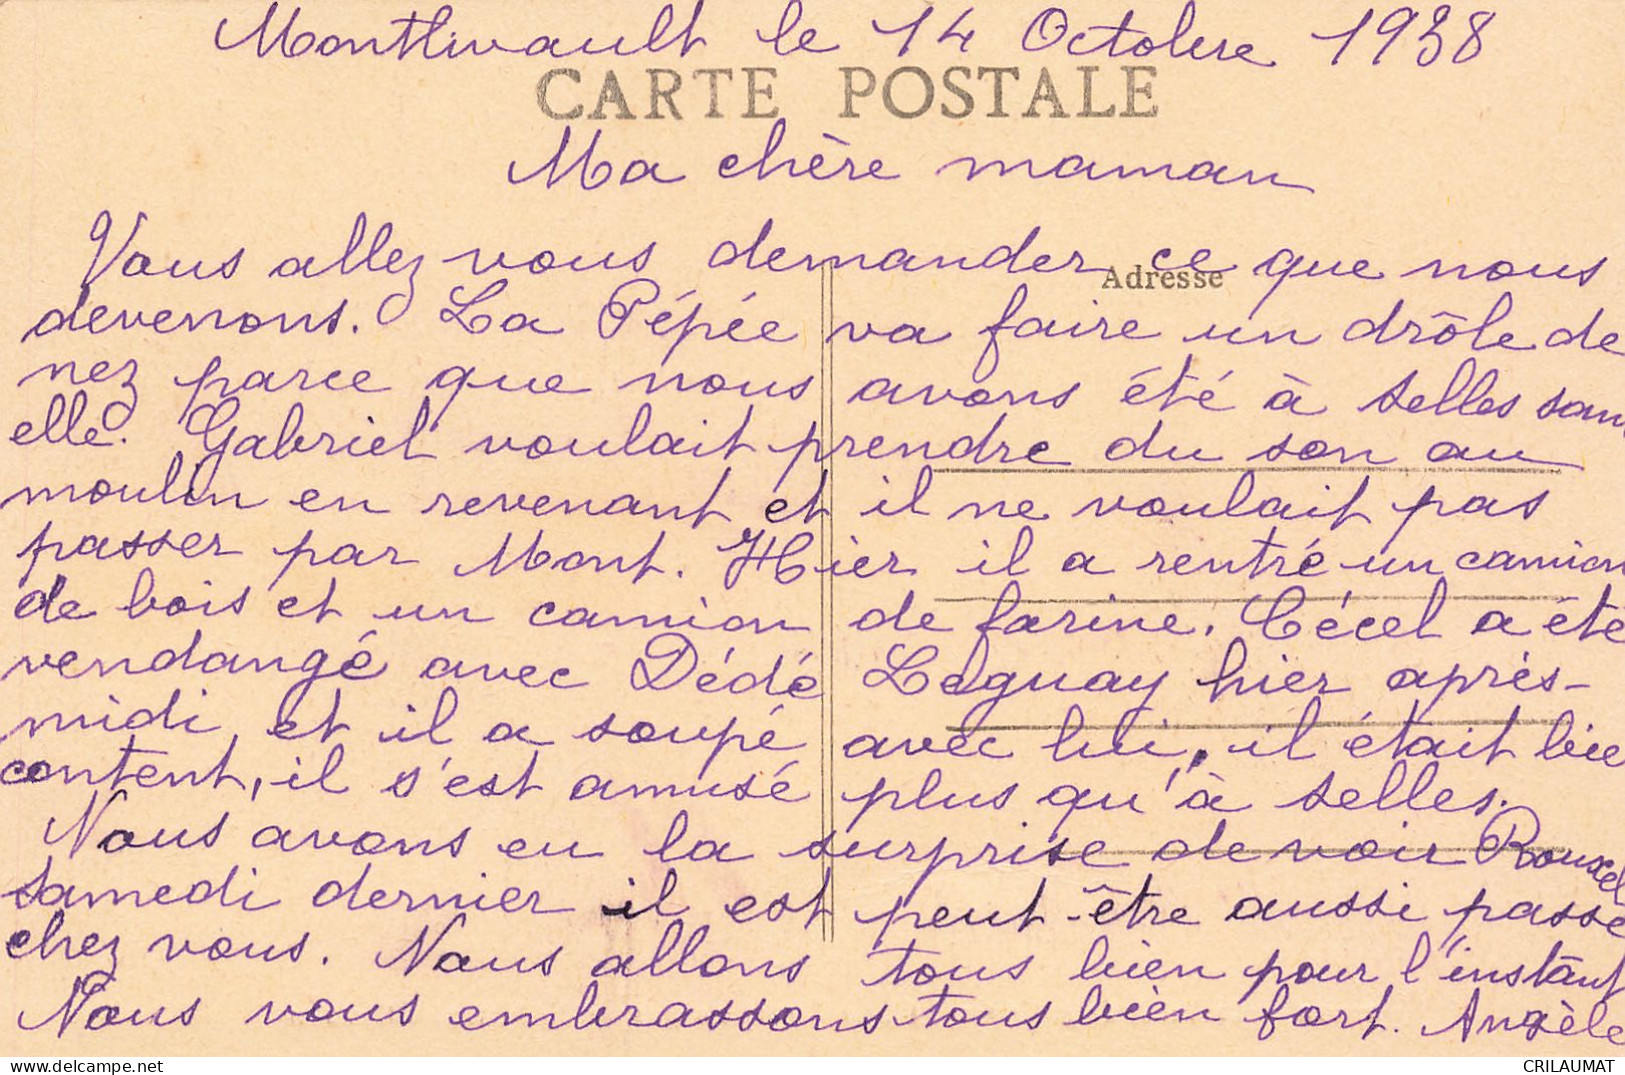 Montlivault le 14 Octobre 1938
CARTE POSTALE
Ma chère maman
Adresse
Vous allez vous demander ce que nous
devenons. La Pépée va faire un drôle de
nez parce que nous avons été à Selles sans
elle. Gabriel voulait prendre du son au
moulin en revenant et il ne voulait pas
passer par Mont. Hier il a rentré un camion
de bois et un camion de farine. Cécel a été
vendangé avec Dédé Leguay hier après-
midi et il a soupé avec lui, il était bie
content, il s'est amusé plus qu'à Selles.
Nous avons eu la surprise de voir Rouxel
samedi dernier il est peut-être aussi passé
chez vous. Nous allons tous bien pour l'instant
Nous vous embrassons tous bien fort. Angèle
www.delcampe.net
CRILAUMAT